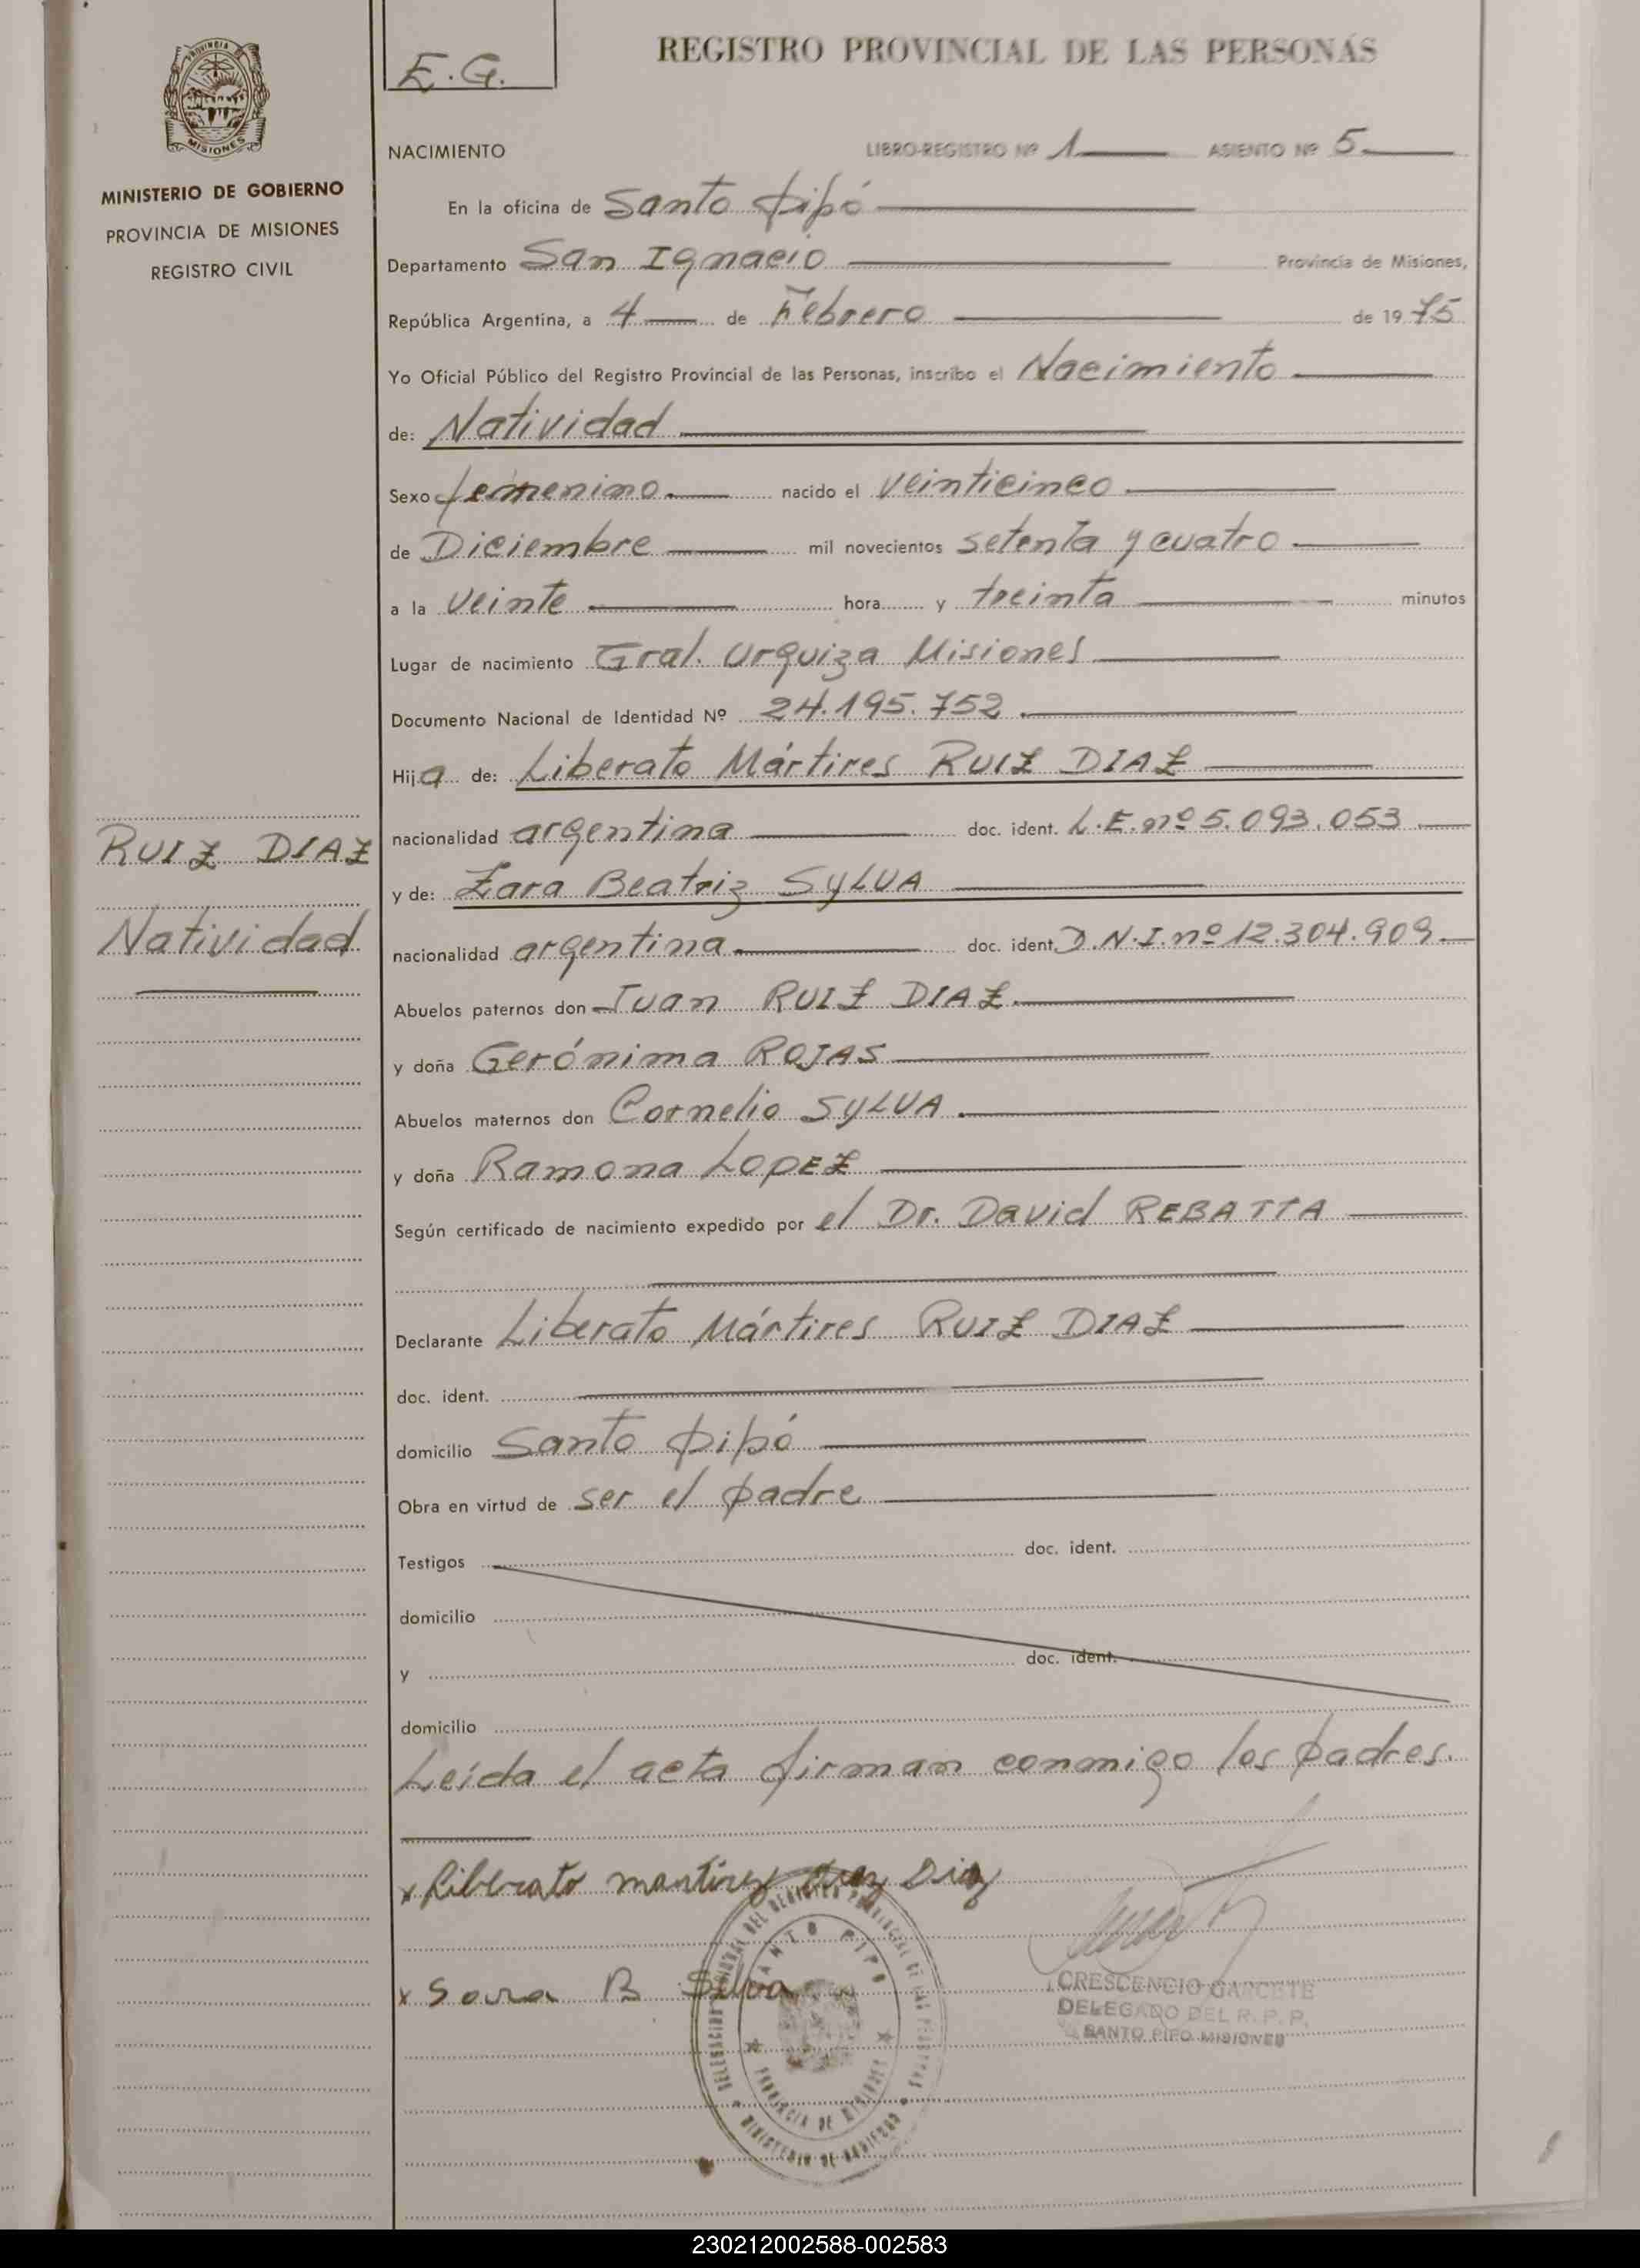 E.G.
REGISTRO PROVINCIAL DE LAS PERSONAS
MISIONES
MINISTERIO DE GOBIERNO
PROVINCIA DE MISIONES
REGISTRO CIVIL
NACIMIENTO LIBRO-REGISTRO Nº 1 ASIENTO Nº 5
En la oficina de Santo Pipó
Departamento San Ignacio Provincia de Misiones,
República Argentina, a 4 de Febrero de 1975
Yo Oficial Público del Registro Provincial de las Personas, inscribo el Nacimiento
de: Natividad
Sexo femenino. nacido el veinticinco
de Diciembre mil novecientos setenta y cuatro
a la veinte hora y treinta minutos
Lugar de nacimiento Gral. Urquiza Misiones
Documento Nacional de Identidad Nº 24.195.752.
Hija de: Liberato Mártires RUIZ DIAZ
nacionalidad argentina doc. ident. L.E. nº 5.093.053
y de: Zara Beatriz SYLVA
nacionalidad argentina. doc. ident. D.N.I. nº 12.304.909.
RUIZ DIAZ
Natividad
Abuelos paternos don Juan RUIZ DIAZ.
y doña Gerónima ROJAS
Abuelos maternos don Cornelio SYLVA.
y doña Ramona LOPEZ
Según certificado de nacimiento expedido por el Dr. David REBATTA
Declarante Liberato Mártires RUIZ DIAZ
doc. ident.
domicilio Santo Pipó
Obra en virtud de ser el padre
Testigos doc. ident.
domicilio
y doc. ident.
domicilio
Leída el acta firman conmigo los padres.
x Liberato martirez Diaz
x Sara B Silva
DELEGACION REGIONAL DEL REGISTRO PROVINCIAL DE LAS PERSONAS
SANTO PIPO
PROVINCIA DE MISIONES
MINISTERIO DE GOBIERNO
CRESCENCIO GARCETE
DELEGADO DEL R. P. P.
SANTO PIPO MISIONES
230212002588-002583